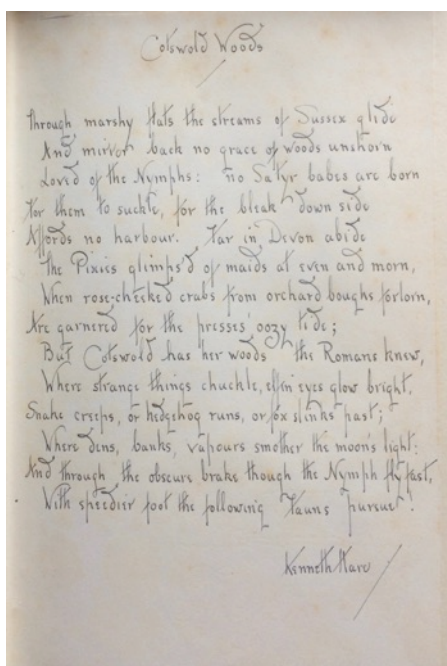 Cotswold Woods
Through marshy flats the streams of Sussex glide
And mirror back no grace of woods unshorn
Loved of the Nymphs: no Satyr babes are born
For them to suckle, for the bleak down side
Affords no harbour. Far in Devon abide
The Pixies glimps'd of maids at even and morn,
When rose-cheeked crabs from orchard boughs forlorn,
Are garnered for the presses' oozy tide;
But Cotswold has her woods the Romans knew,
Where strange things chuckle, elfin eyes glow bright,
Snake creeps, or hedgehog runs, or fox slinks past;
Where dens, banks, vapours smother the moon's light:
And through the obscure brake though the Nymph fly fast,
With speedier foot the following Fauns pursue!
Kenneth Hare